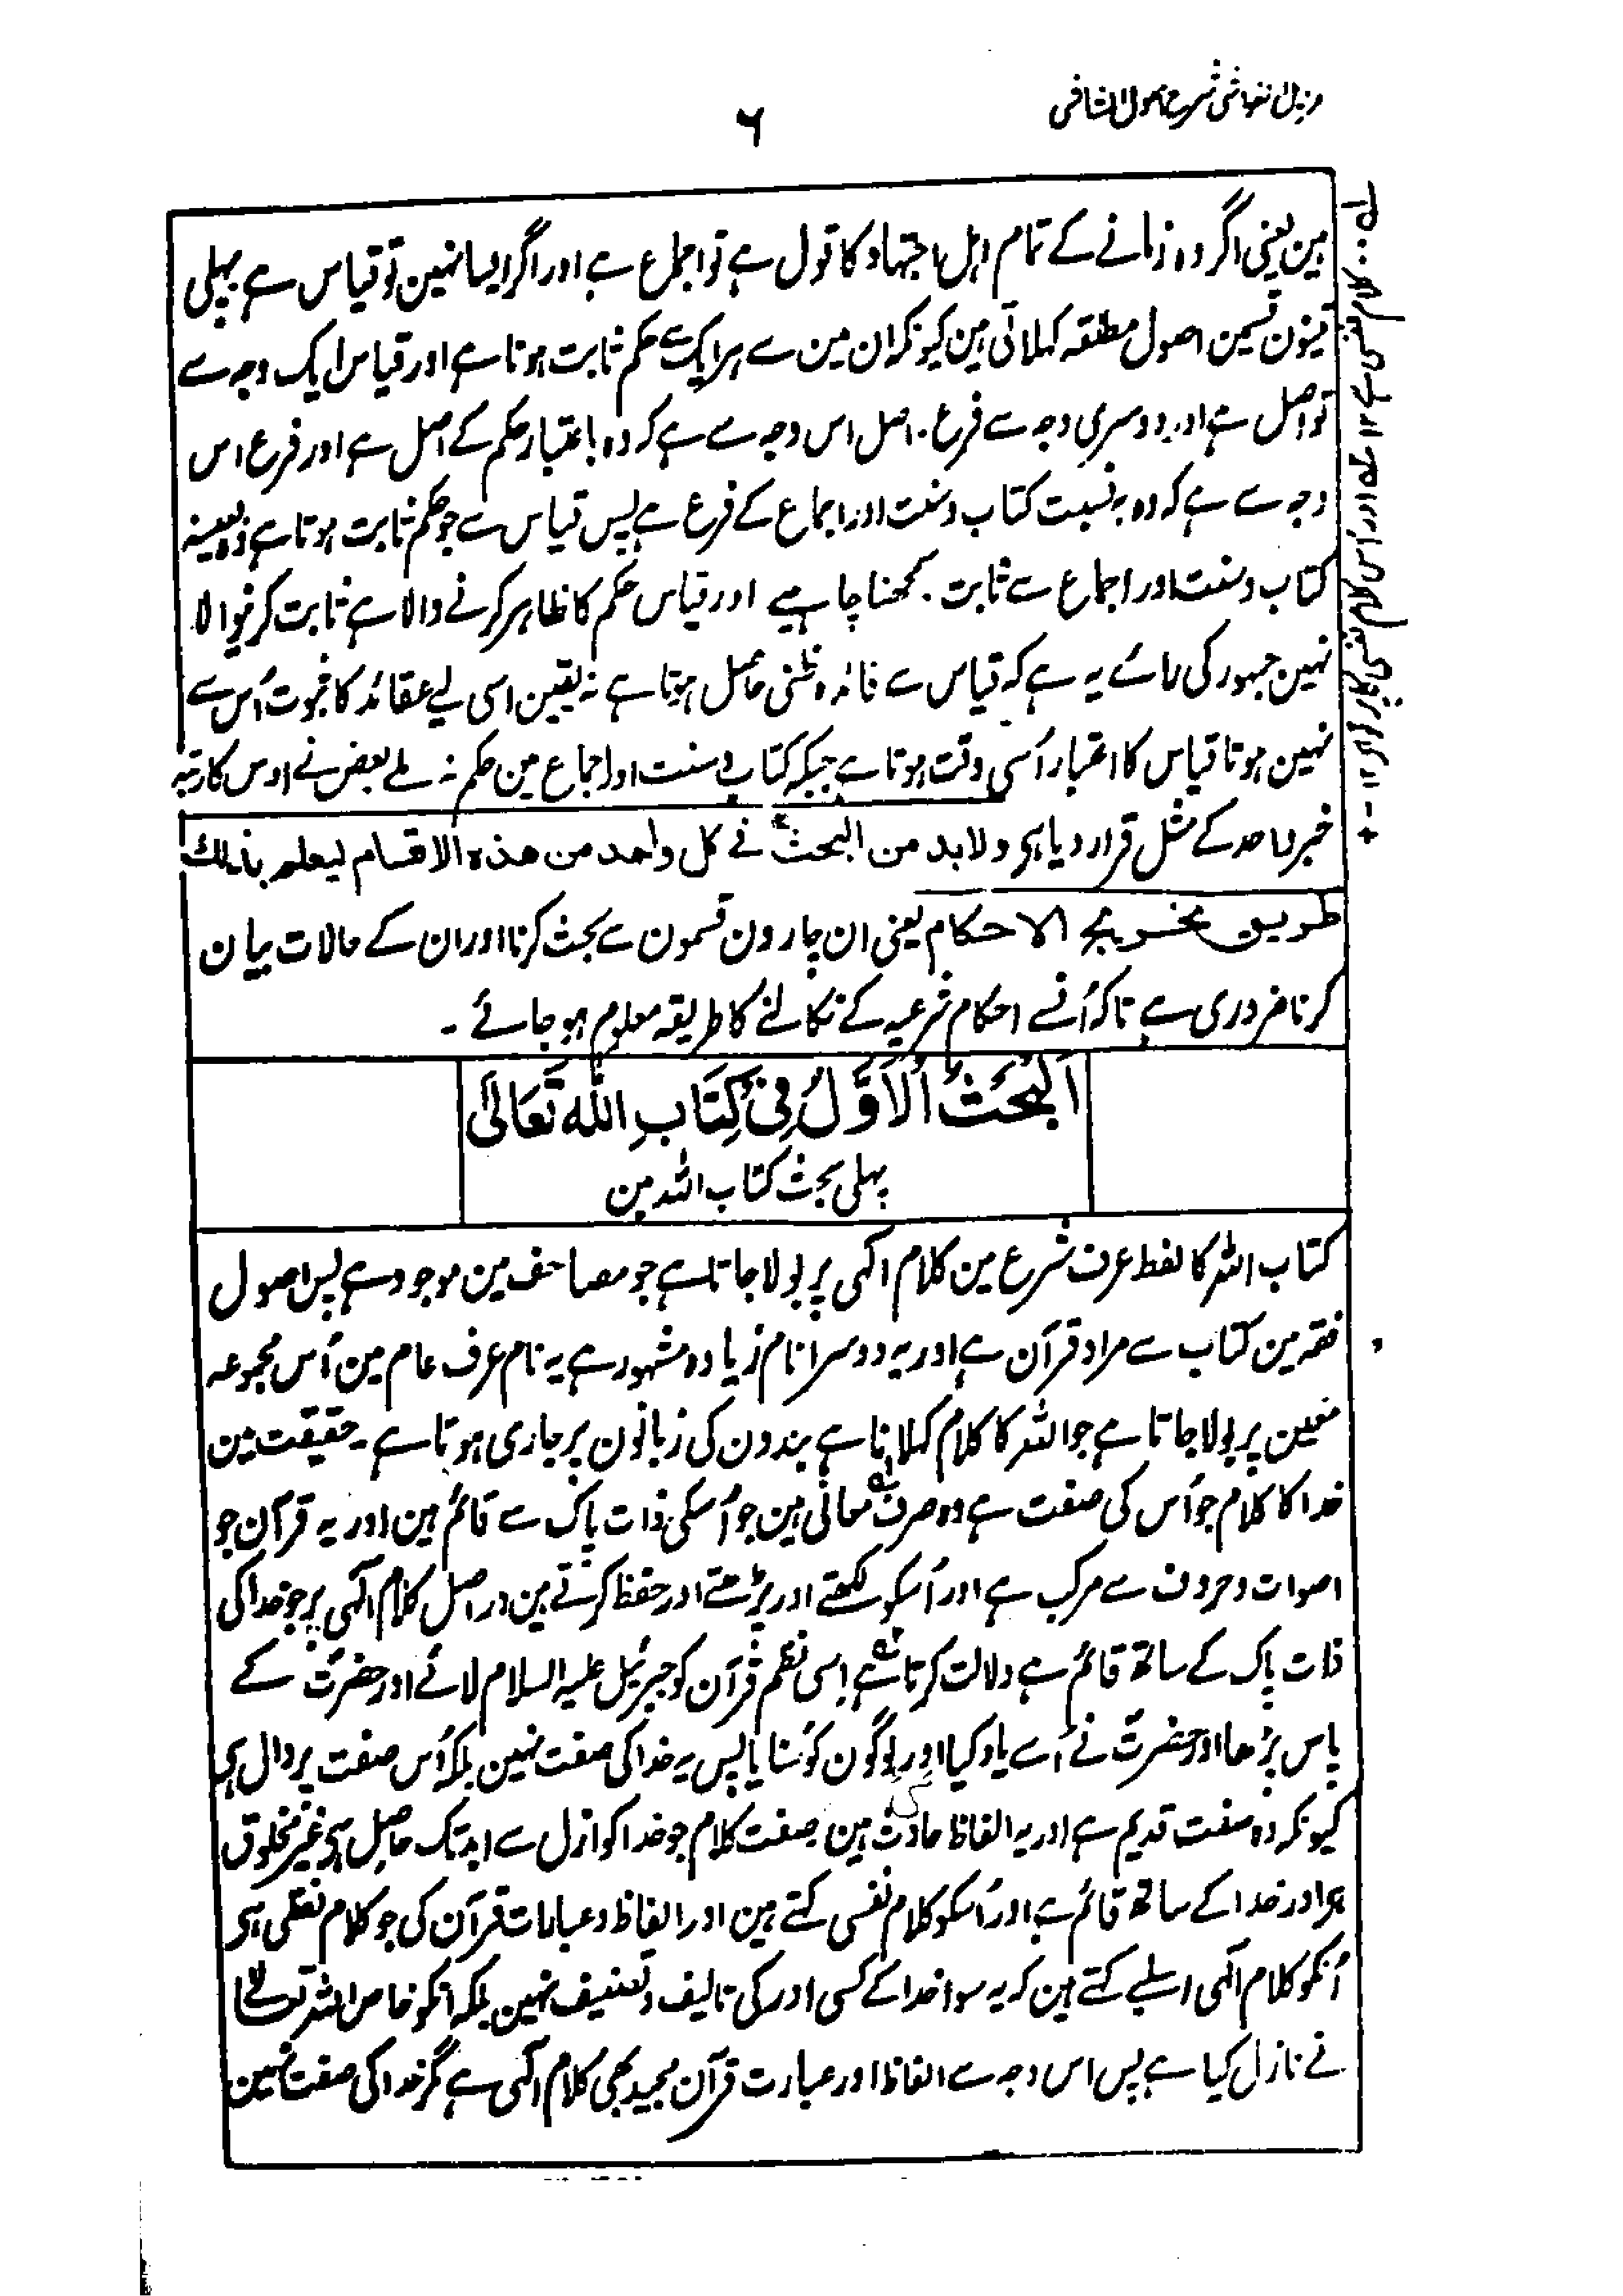 مزیل الغواشی شرح اصول الشاشی
۶
ہین یعنی اگر وہ زمانے کے تمام اہل اجتہاد کا قول ہے تو اجماع ہے اور اگر ایسا نہین تو قیاس ہے پہلی
تینون قسمین اصول مطلقہ کہلاتی ہین کیونکہ ان مین سے ہر ایک سے حکم ثابت ہوتا ہے اور قیاس ایک وجہ سے
تو اصل ہے اور دوسری وجہ سے فرع۔ اصل اس وجہ سے ہے کہ وہ باعتبار حکم کے اصل ہے اور فرع اس
وجہ سے ہے کہ وہ بہ نسبت کتاب و سنت اور اجماع کے فرع ہے پس قیاس سے جو حکم ثابت ہوتا ہے وہ بعینہ
کتاب و سنت اور اجماع سے ثابت سمجھنا چاہیے اور قیاس حکم کا ظاہر کرنے والا ہے ثابت کرنیوالا
نہین جمہور کی رائے یہ ہے کہ قیاس سے فائدہ ظنی حاصل ہوتا ہے نہ یقین اسی لیے عقائد کا ثبوت اُس سے
نہین ہوتا قیاس کا اعتبار اُسی وقت ہوتا ہے جبکہ کتاب و سنت اور اجماع مین حکم نہ ملے بعض نے اوس کا رتبہ
خبر واحد کے مثل قرار دیا ہی ولابد من البحث فی کل واحد من ھذہ الاقسام لیعلم بذلك
طریق تخریج الاحکام یعنی ان چارون قسمون سے بحث کرنا اور ان کے حالات بیان
کرنا ضروری ہے تاکہ اُنسے احکام شرعیہ کے نکالنے کا طریقہ معلوم ہو جائے ۔
اَلْبَحْثُ الْاَوَّلُ فِیْ کِتَابِ اللہِ تَعَالٰی
پہلی بحث کتاب اللہ مین
کتاب اللہ کا لفظ عرف شرع مین کلام الٰہی پر بولا جاتا ہے جو مصاحف مین موجود ہے پس اصول
فقہ مین کتاب سے مراد قرآن ہے اور یہ دوسرا نام زیادہ مشہور ہے یہ نام عرف عام مین اُس مجموعہ
معین پر بولا جاتا ہے جو اللہ کا کلام کہلاتا ہے بندون کی زبانون پر جاری ہوتا ہے۔ حقیقت مین
خدا کا کلام جو اُس کی صفت ہے وہ صرف معانی ہین جو اُسکی ذات پاک سے قائم ہین اور یہ قرآن جو
اصوات و حروف سے مرکب ہے اور اُسکو لکھتے اور پڑھتے اور حفظ کرتے ہین دراصل کلام الٰہی پر جو خدا کی
ذات پاک کے ساتھ قائم ہے دلالت کرتا ہے اِسی نظم قرآن کو جبرئیل علیہ السلام لائے اور حضرتؐ کے
پاس پڑھا اور حضرتؐ نے اُسے یاد کیا اور لوگون کو سُنایا پس یہ خدا کی صفت نہین بلکہ اُس صفت پر دال ہی
کیونکہ وہ صفت قدیم ہے اور یہ الفاظ حادث ہین صفت کلام جو خدا کو ازل سے ابد تک حاصل ہی غیر مخلوق
ہی اور خدا کے ساتھ قائم ہے اور اُسکو کلام نفسی کہتے ہین اور الفاظ و عبارات قرآن کی جو کلام لفظی ہی
اُنکو کلام الٰہی اسلیے کہتے ہین کہ یہ سوا خدا کے کسی اور کی تالیف و تصنیف نہین بلکہ انکو خاص اللہ تعالٰے
نے نازل کیا ہے پس اس وجہ سے الفاظ اور عبارت قرآن مجید بھی کلام الٰہی ہے مگر خدا کی صفت نہین